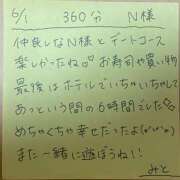 6/1 360分 N様
仲良しなN様とデートコース
楽しかったね♡お寿司や買い物
最後はホテルでいちゃいちゃして
あっという間の6時間でした♡
めちゃくちゃ幸せだったよ(*'▽'*)
また一緒に遊ぼうね!
みと